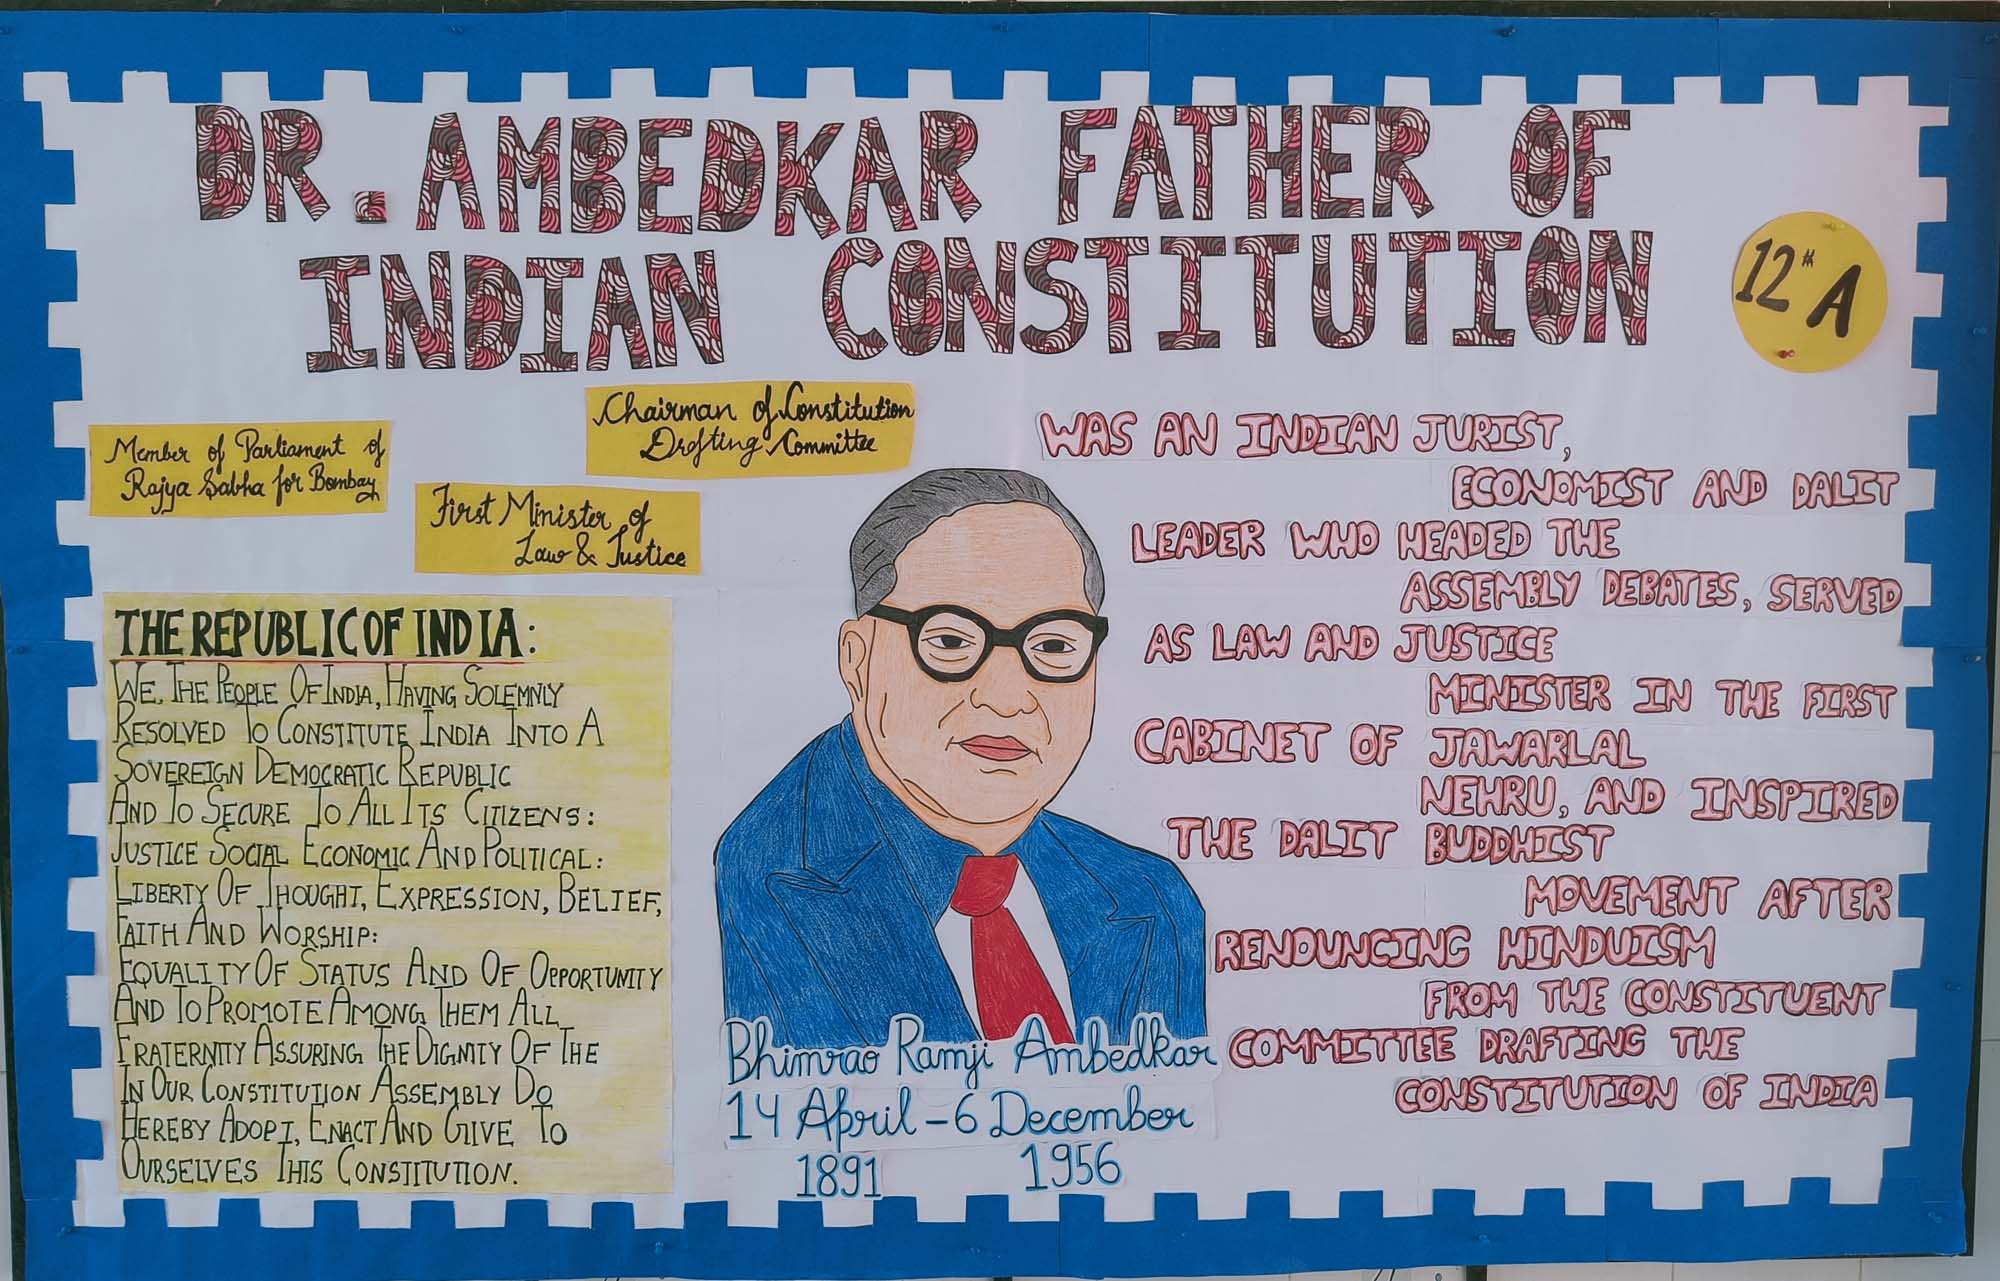 DR. AMBEDKAR FATHER OF
INDIAN CONSTITUTION
12th A
Member of Parliament of
Rajya Sabha for Bombay
Chairman of Constitution
Drafting Committee
First Minister of
Law & Justice
THE REPUBLIC OF INDIA:
WE, THE PEOPLE OF INDIA, HAVING SOLEMNLY
RESOLVED TO CONSTITUTE INDIA INTO A
SOVEREIGN DEMOCRATIC REPUBLIC
AND TO SECURE TO ALL ITS CITIZENS:
JUSTICE SOCIAL ECONOMIC AND POLITICAL:
LIBERTY OF THOUGHT, EXPRESSION, BELIEF,
FAITH AND WORSHIP:
EQUALITY OF STATUS AND OF OPPORTUNITY
AND TO PROMOTE AMONG THEM ALL
FRATERNITY ASSURING THE DIGNITY OF THE
IN OUR CONSTITUTION ASSEMBLY DO
HEREBY ADOPT, ENACT AND GIVE TO
OURSELVES THIS CONSTITUTION.
Bhimrao Ramji Ambedkar
14 April - 6 December
1891 1956
WAS AN INDIAN JURIST,
ECONOMIST AND DALIT
LEADER WHO HEADED THE
ASSEMBLY DEBATES, SERVED
AS LAW AND JUSTICE
MINISTER IN THE FIRST
CABINET OF JAWARLAL
NEHRU, AND INSPIRED
THE DALIT BUDDHIST
MOVEMENT AFTER
RENOUNCING HINDUISM
FROM THE CONSTITUENT
COMMITTEE DRAFTING THE
CONSTITUTION OF INDIA